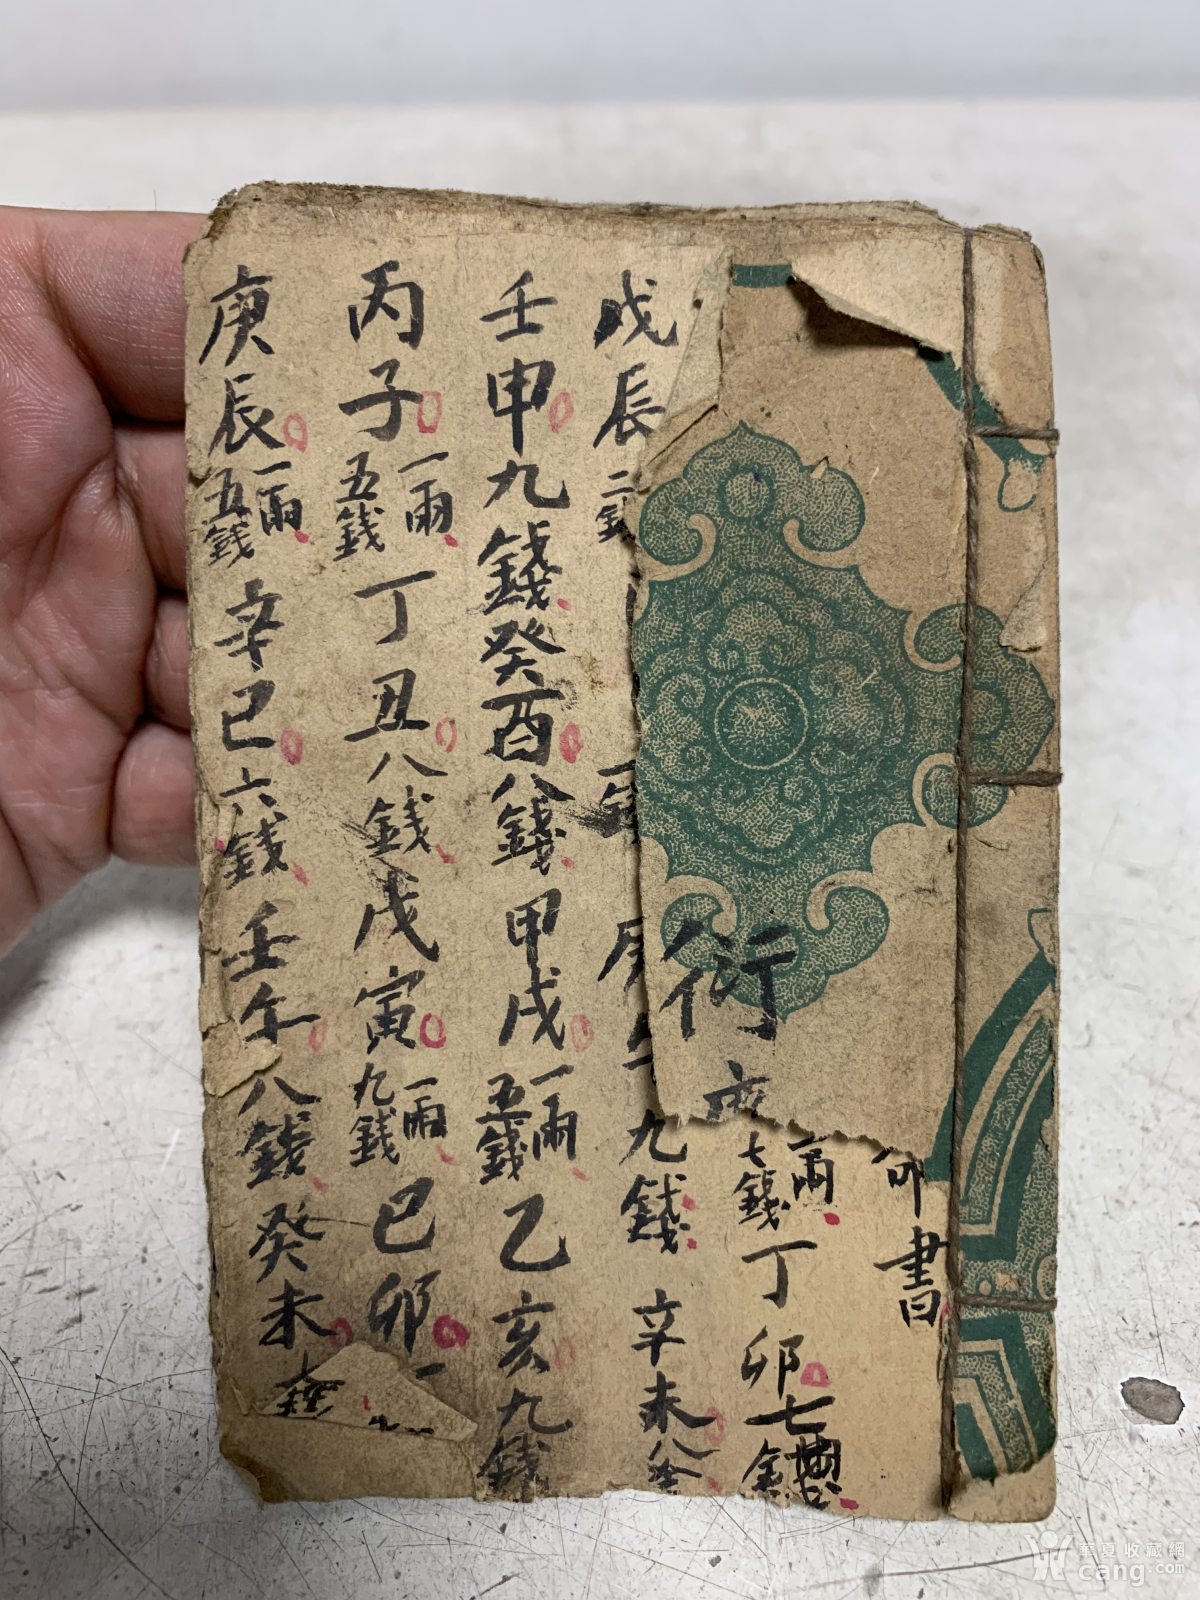 書
七錢 丁卯七錢
衍
戊辰二錢 九錢 辛未八
壬申九錢癸酉八錢甲戌一兩五錢乙亥九錢
丙子一兩五錢丁丑八錢戊寅一兩九錢己卯一
庚辰一兩五錢辛巳六錢壬午八錢癸未
華夏收藏網
cang.com